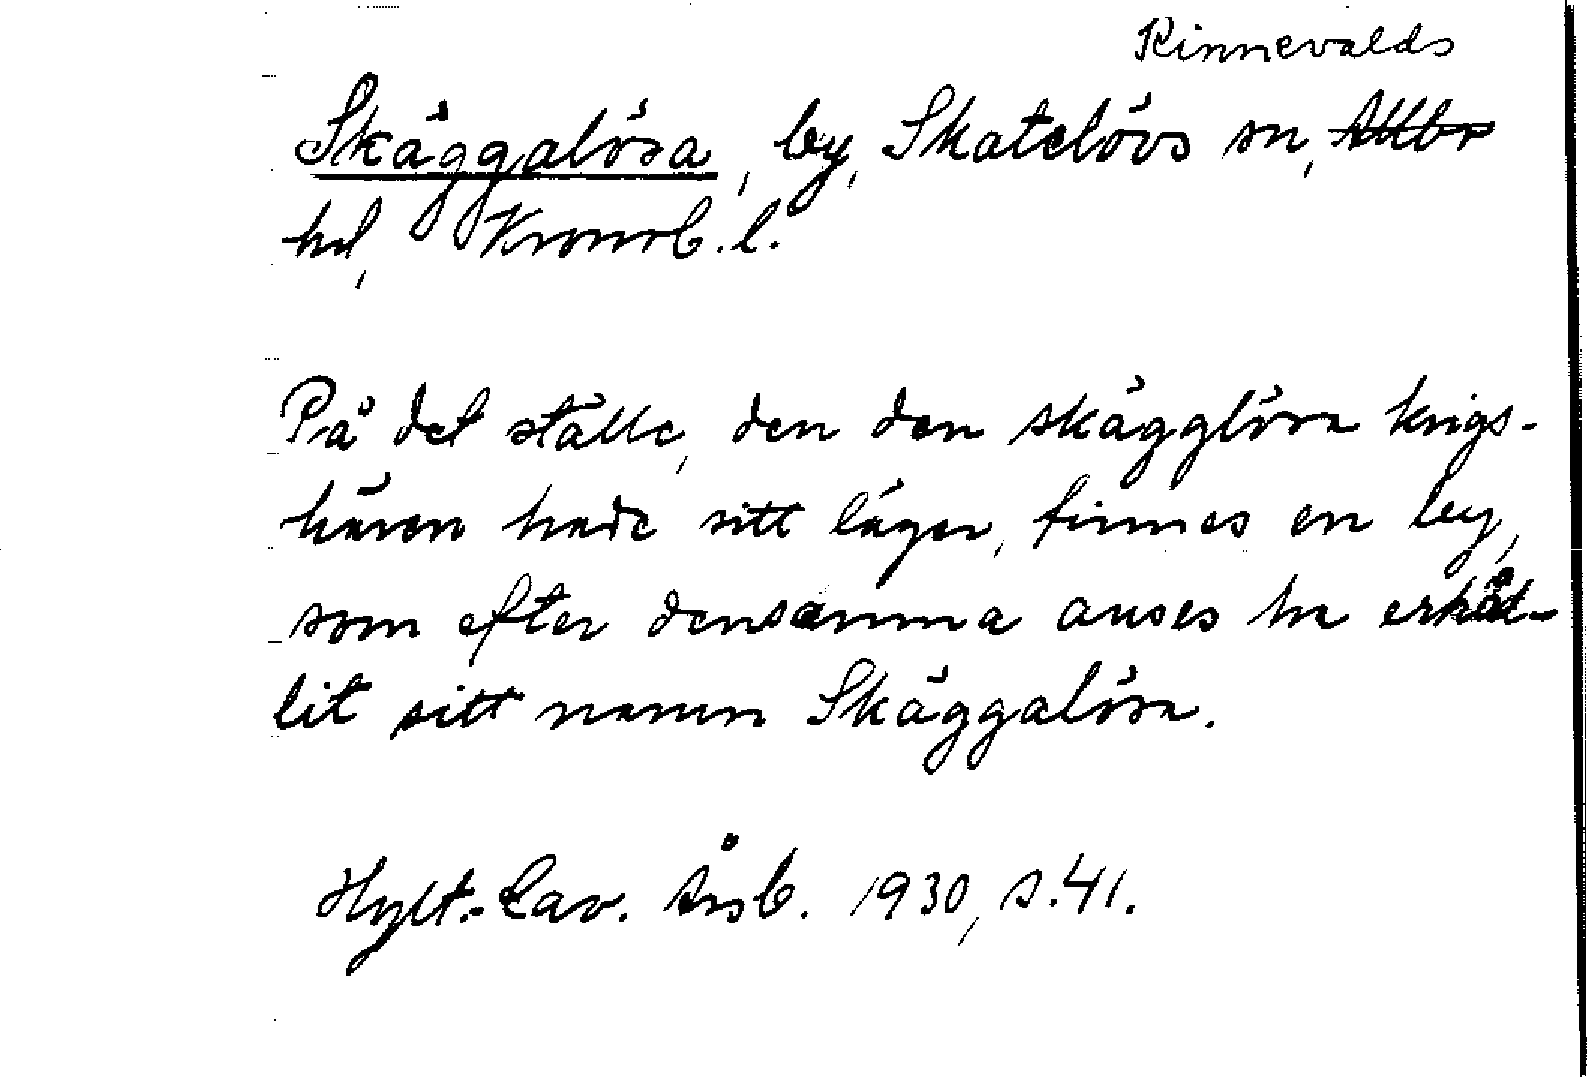 Kinnevalds
Skäggalösa, by, Skatelövs sn, Allbo
hd, Kronob. l.
På det ställe, den den skägglösa krigs-
hären hade sitt läger, finnes en by,
som efter densamma anses ha erhål-
lit sitt namn Skäggalösa.
Hylt.-Cav. Årsb. 1930, s. 41.